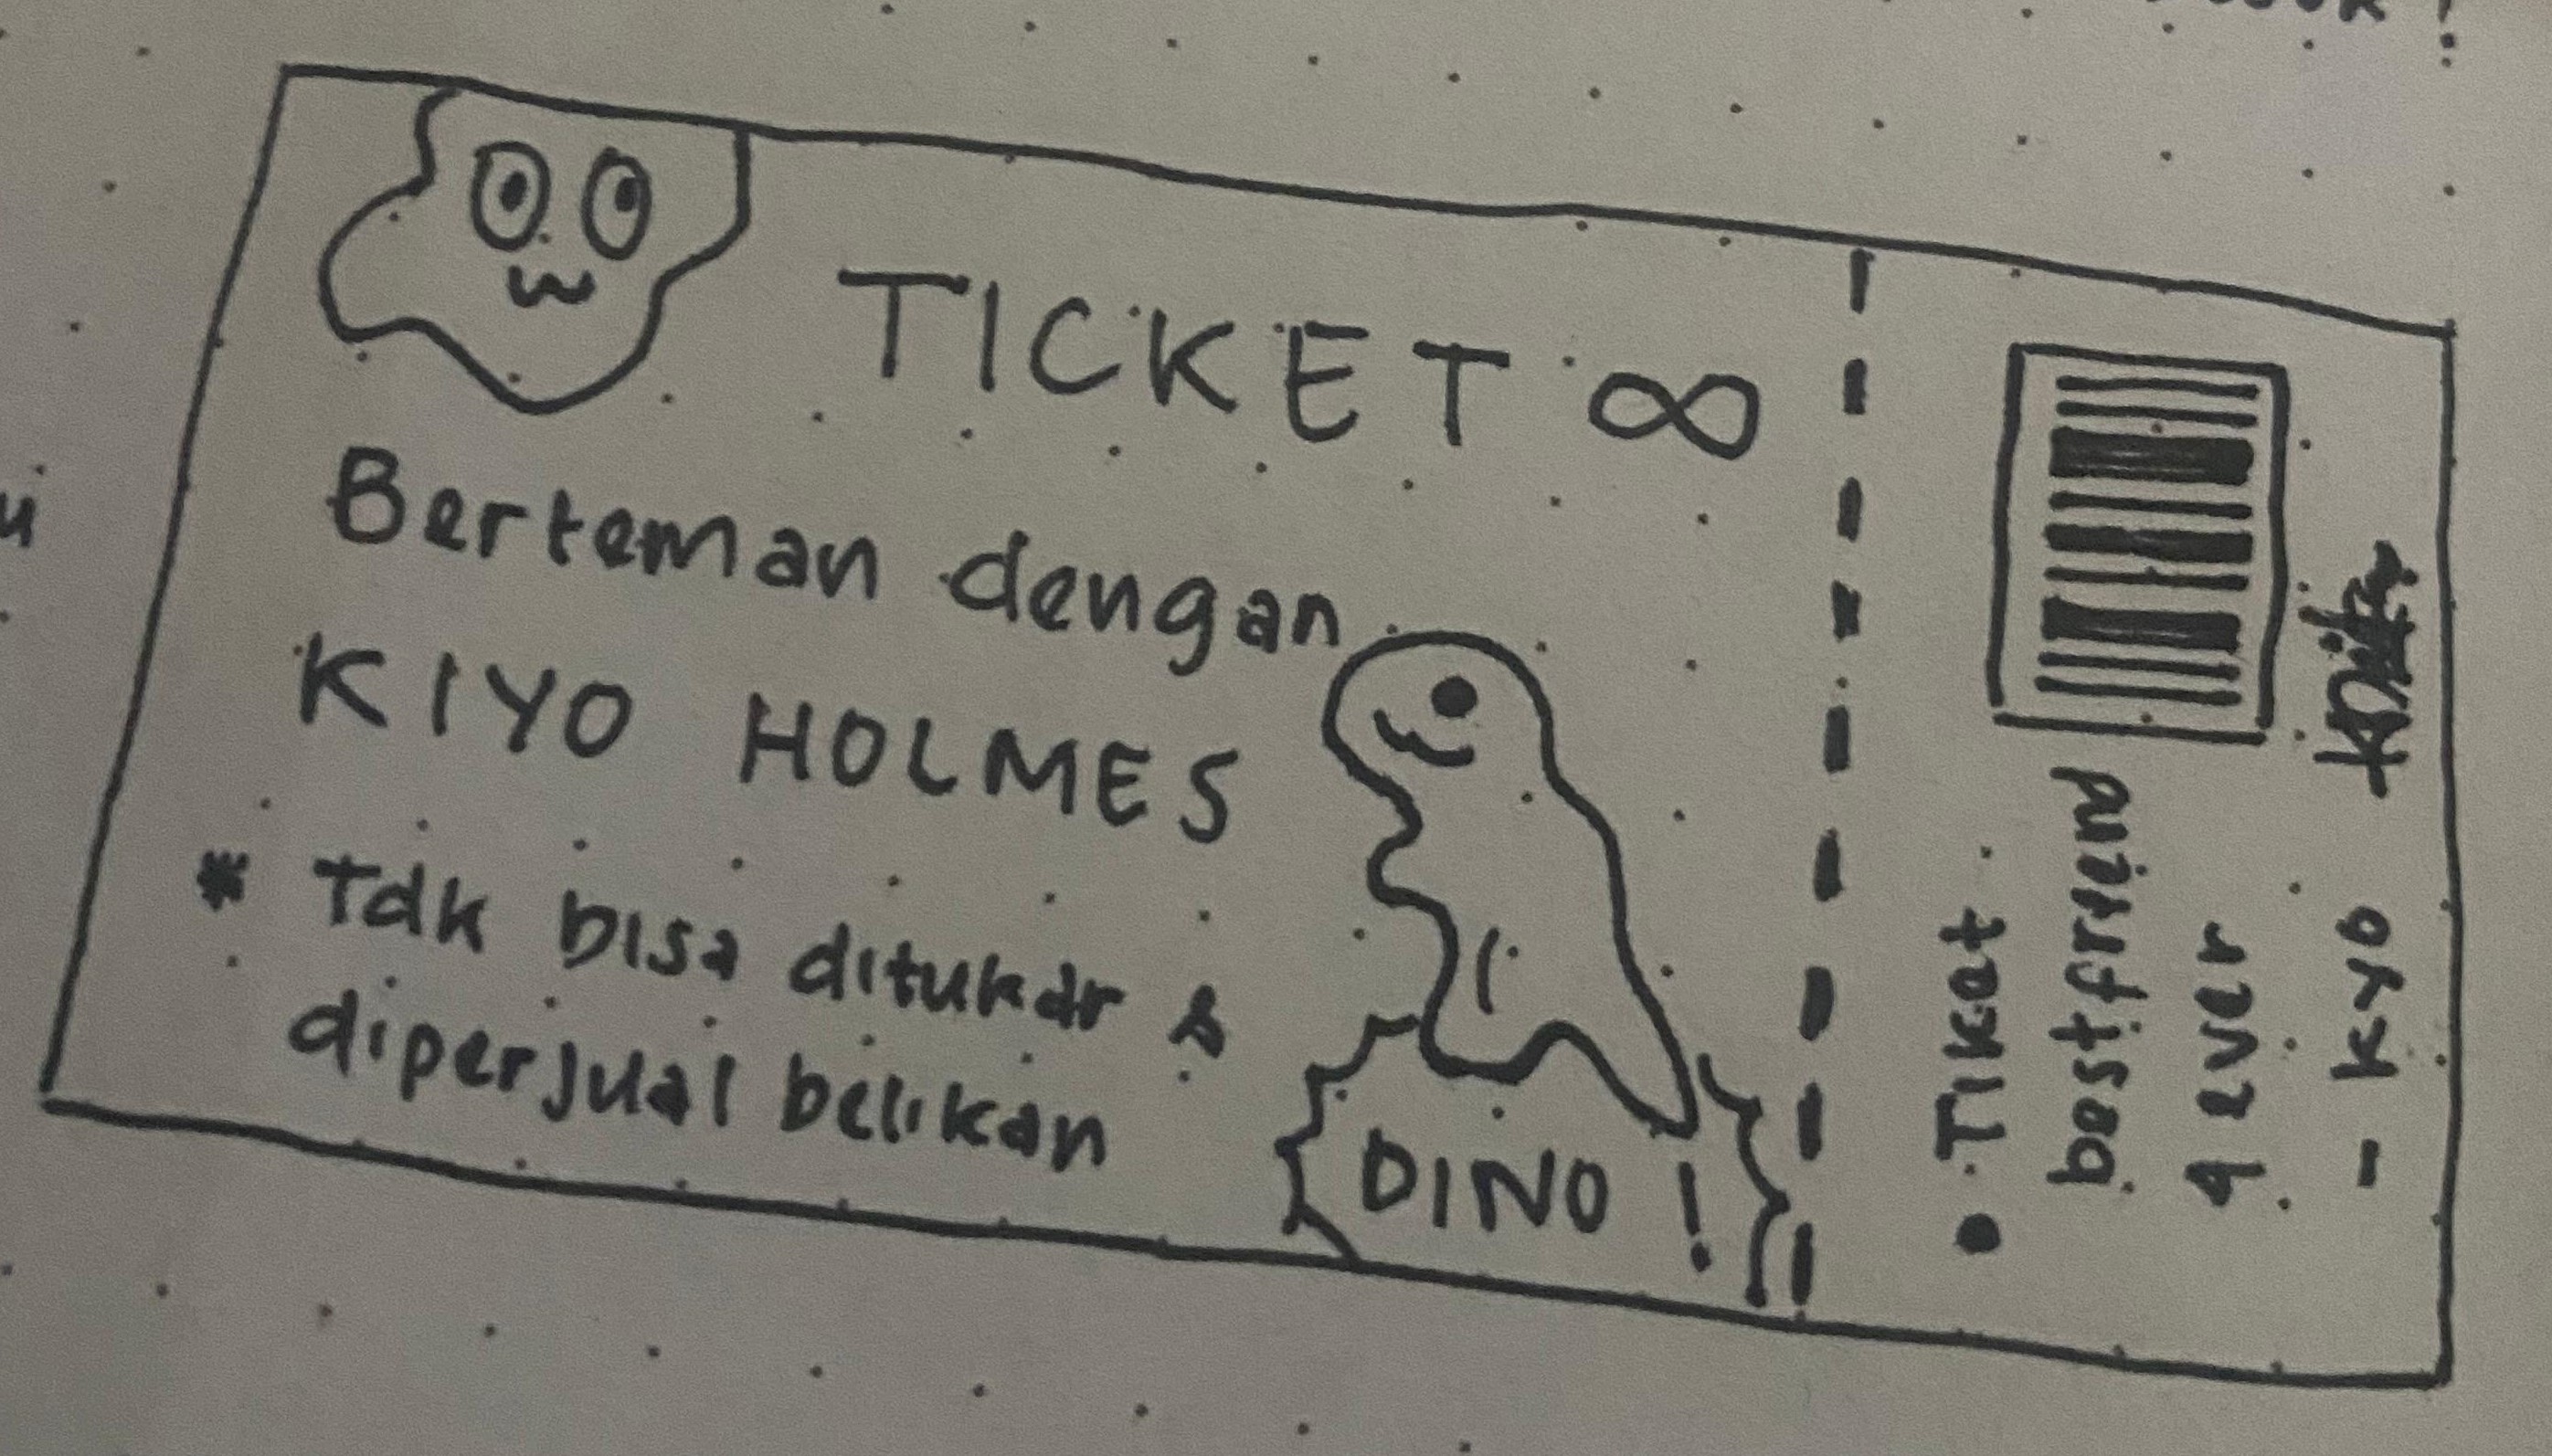 TICKET ∞
Berteman dengan
KIYO HOLMES
* Tdk bisa ditukar &
diperjual belikan
DINO !
• Tiket
bestfriend
4 ever
- kyo